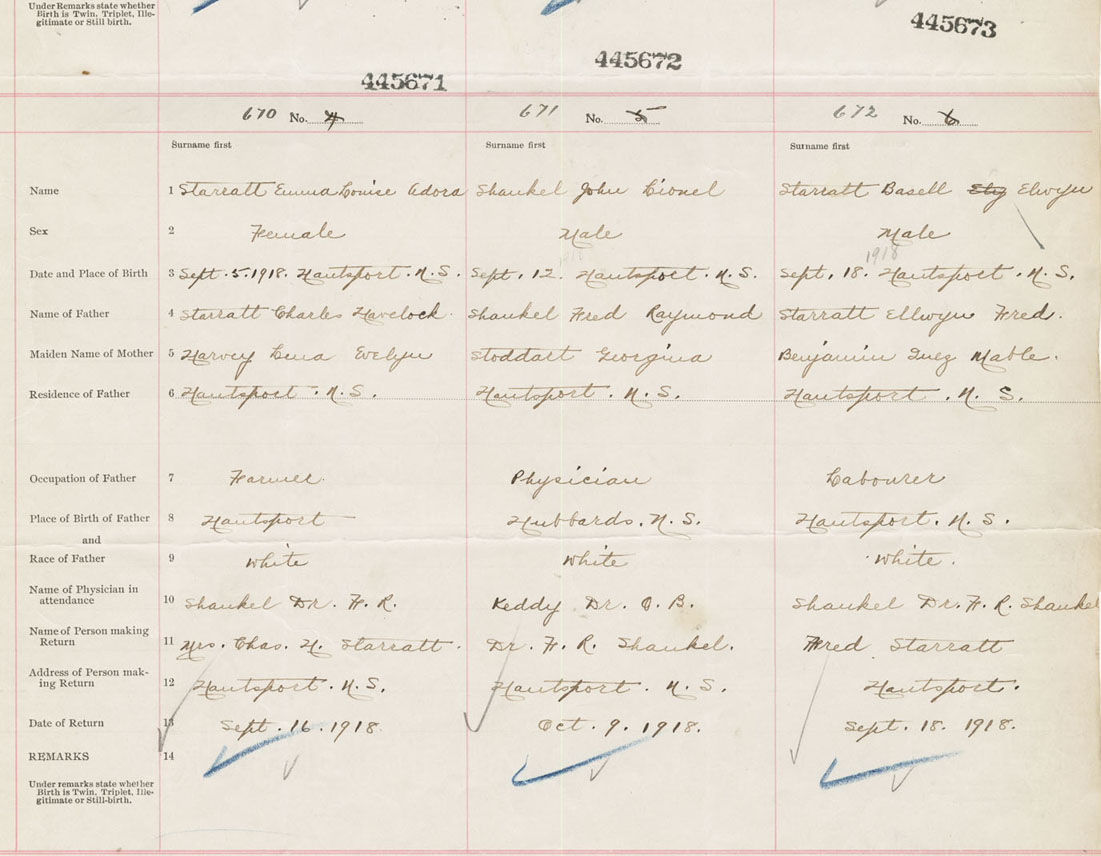 Under Remarks state whether
Birth is Twin, Triplet, Ille-
gitimate or Still birth.
445671 445672 445673
670 No. 4 671 No. 5 672 No. 6
Surname first Surname first Surname first
Name 1 Starratt Emma Louise Adora Shankel John Lionel Starratt Basell Ely Elwyn
Sex 2 Female Male Male
1918 1918
Date and Place of Birth 3 Sept. 5. 1918. Hantsport. N.S. Sept. 12. Hantsport. N.S. Sept. 18. Hantsport. N.S.
Name of Father 4 Starratt Charles Havelock. Shankel Fred Raymond Starratt Ellwyn Fred.
Maiden Name of Mother 5 Harvey Lena Evelyn Stoddart Georgina Benjamin Inez Mable.
Residence of Father 6 Hantsport. N.S. Hantsport. N.S. Hantsport. N. S.
Occupation of Father 7 Farmer. Physician Labourer
Place of Birth of Father 8 Hantsport Hubbards. N.S. Hantsport. N.S.
and
Race of Father 9 White White White.
Name of Physician in
attendance 10 Shankel Dr. F. R. Keddy Dr. O. B. Shankel Dr. F. R. Shankel
Name of Person making
Return 11 Mrs. Chas. H. Starratt. Dr. F. R. Shankel. Fred Starratt
Address of Person mak-
ing Return 12 Hantsport. N.S. Hantsport. N.S. Hantsport.
Date of Return 13 Sept. 16. 1918. Oct. 9. 1918. Sept. 18. 1918.
REMARKS 14
Under remarks state whether
Birth is Twin, Triplet, Ille-
gitimate or Still-birth.